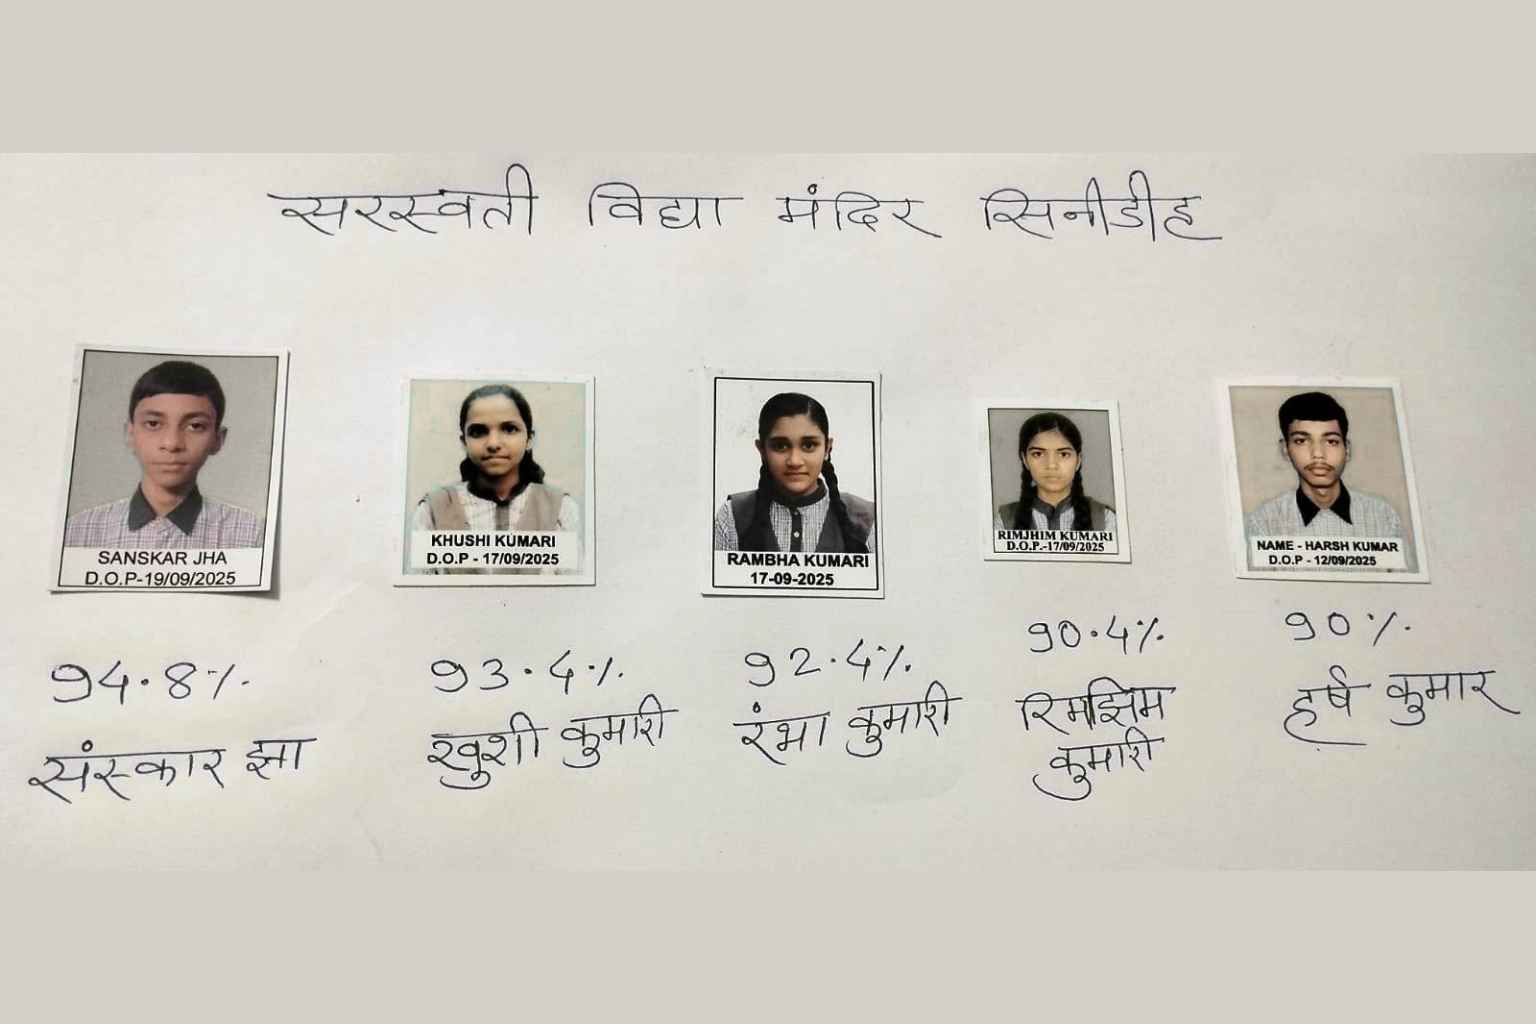 सरस्वती विद्या मंदिर सिनीडीह
SANSKAR JHA
D.O.P-19/09/2025
KHUSHI KUMARI
D.O.P - 17/09/2025
RAMBHA KUMARI
17-09-2025
RIMJHIM KUMARI
D.O.P.-17/09/2025
NAME - HARSH KUMAR
D.O.P - 12/09/2025
94.8%
संस्कार झा
93.4%
खुशी कुमारी
92.4%
रंभा कुमारी
90.4%
रिमझिम
कुमारी
90%
हर्ष कुमार